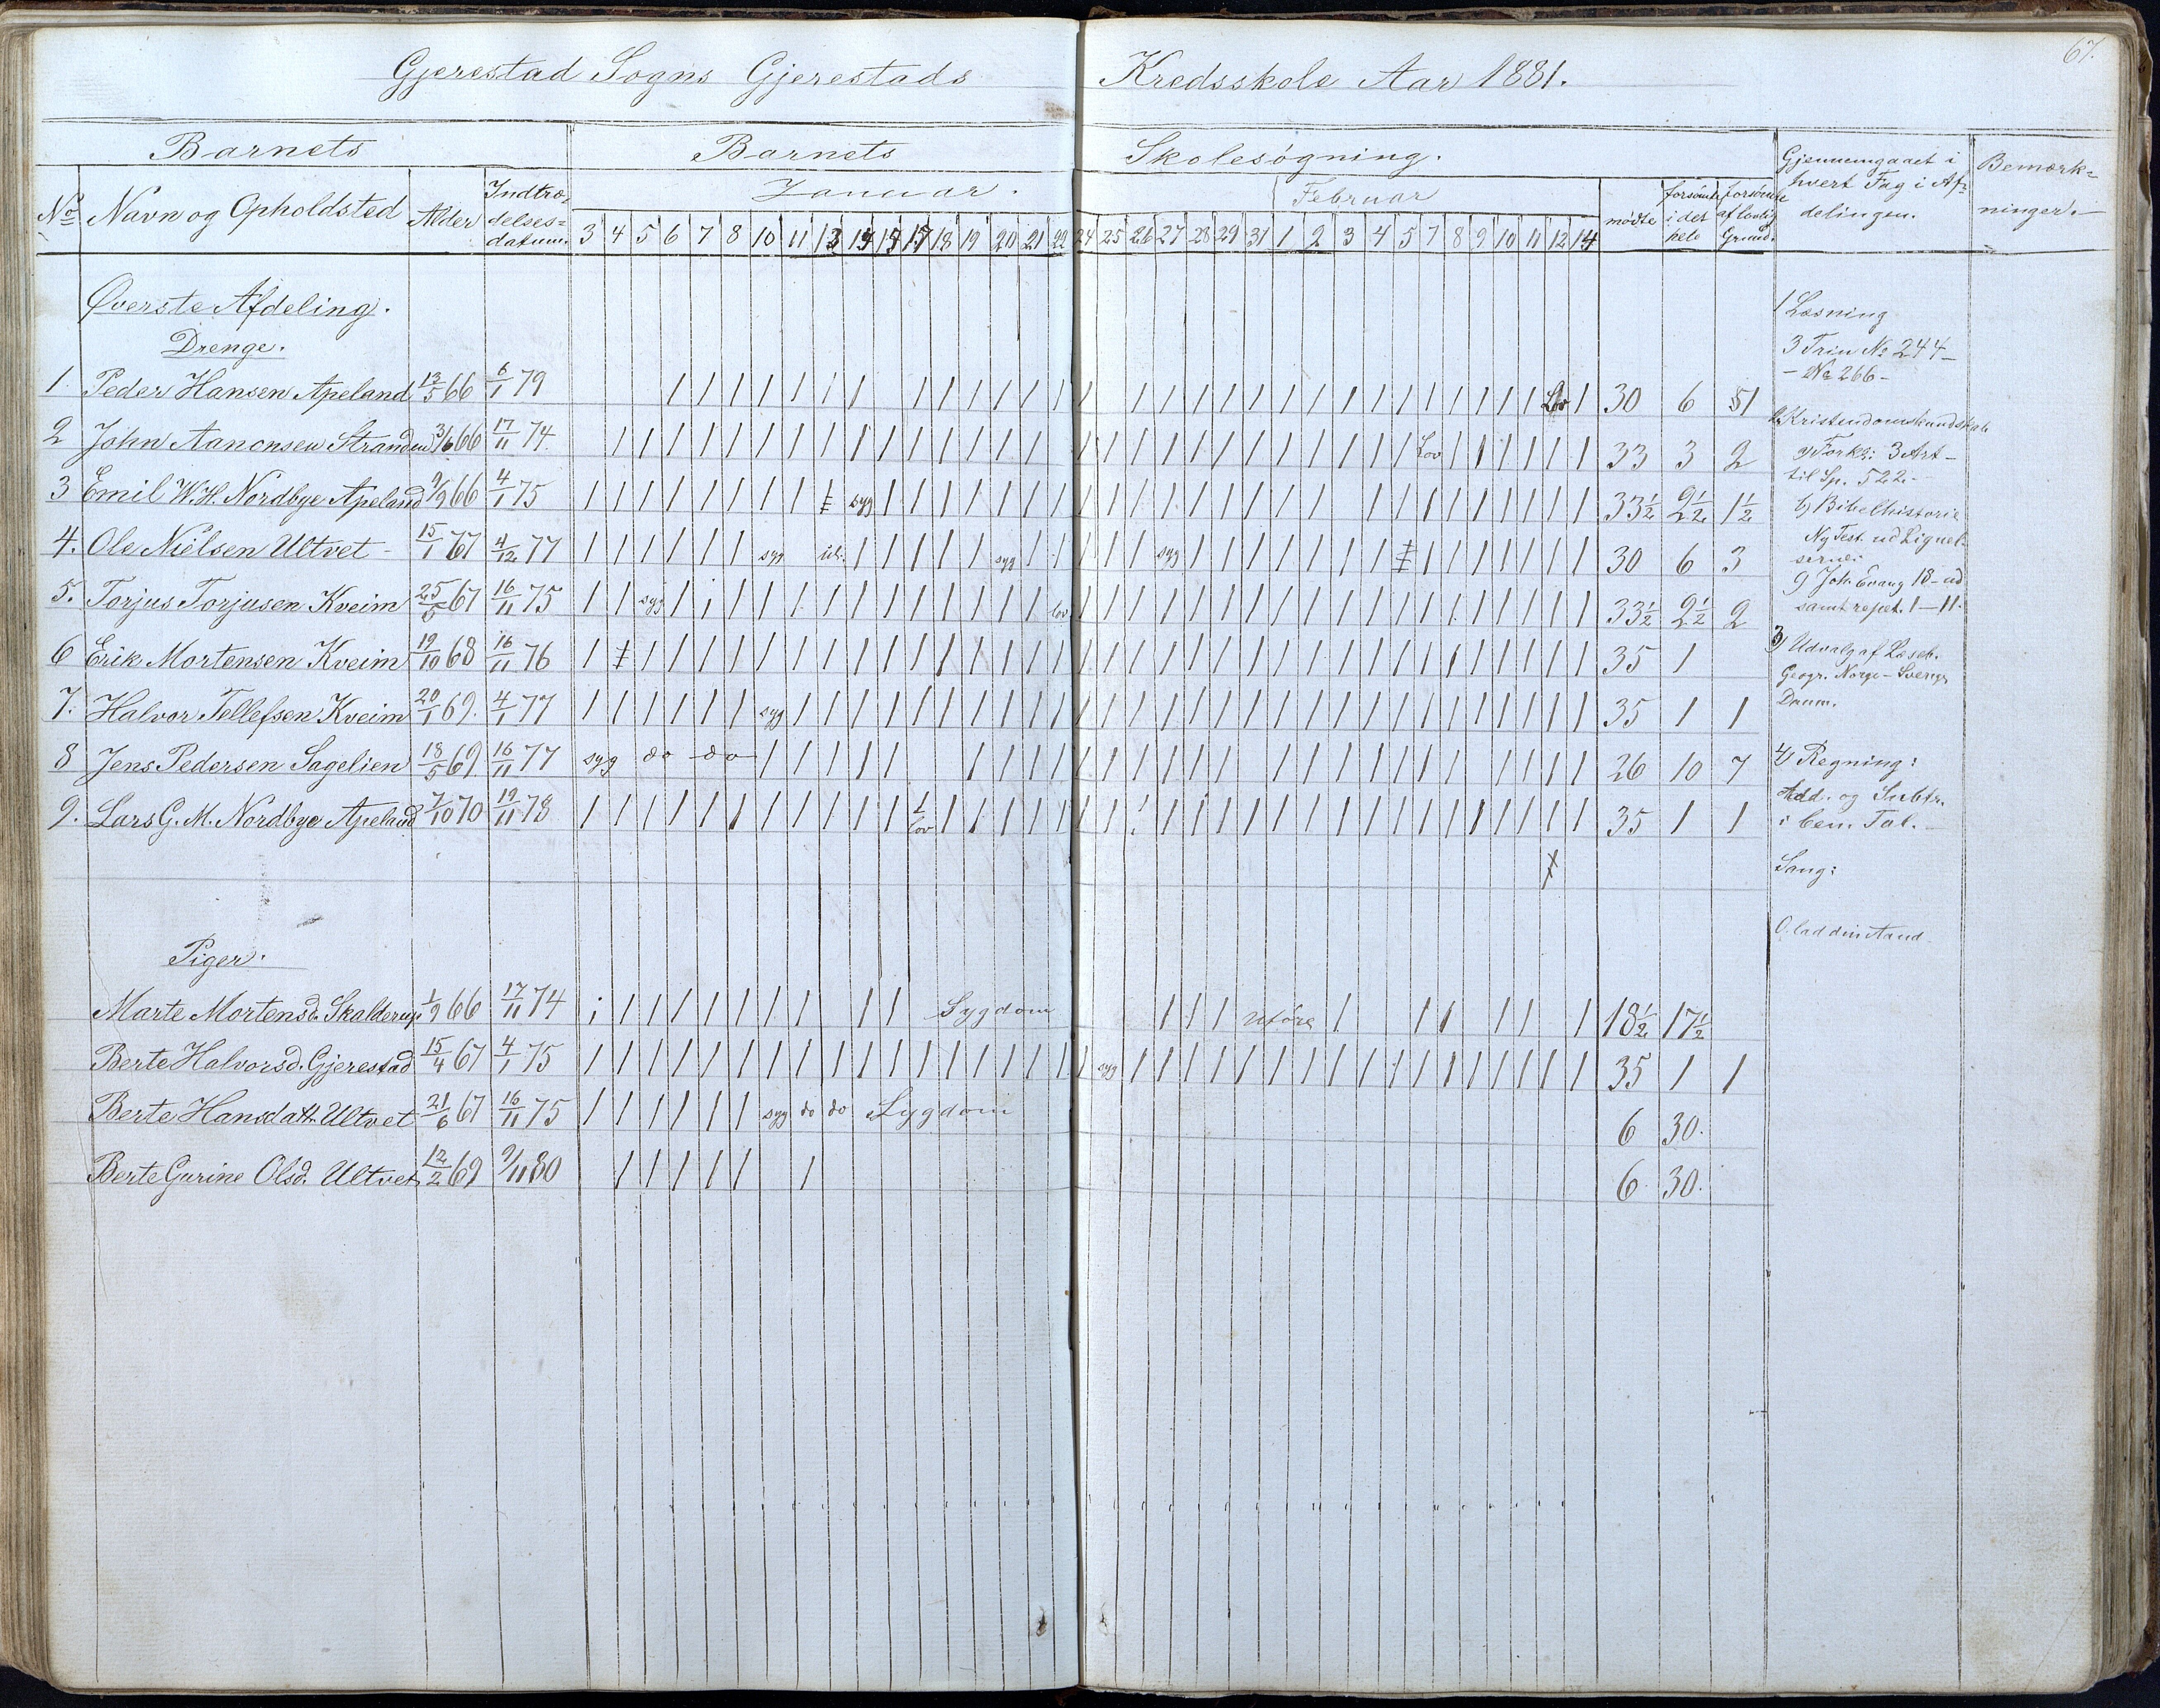 67.
Gjerestad Sogns Gjerestads Kredsskole Aar 1881.
Barnets Barnets Skolesøgning. Gjennemgaaet i hvert Fag i Afdelingen. Bemærkninger.
No Navn og Opholdsted Alder Indtrædelsesdatum Januar. Februar mødte forsømte i det hele forsømte af lovlig Grund.
3 4 5 6 7 8 10 11 13 14 15 17 18 19 20 21 22 24 25 26 27 28 29 31 1 2 3 4 5 7 8 9 10 11 12 14
Øverste Afdeling.
Drenge.
1. Peder Hansen Apeland 13/5 66 6/1 79 | | | | | | | | | | | | | | | | | | | | | | | | | | | | | | Lov | 30 6 1
2 John Aanonsen Stranden 3/6 66 17/11 74 Lov 33 3 2
3 Emil W. H. Nordbye Apeland 9/9 66 4/1 75 syg 33½ 2½ 1½
4. Ole Nielsen Ultvet 15/1 67 4/12 77 syg syg syg 30 6 3
5. Torjus Torjusen Kveim 25/5 67 16/11 75 syg lov 33½ 2½ 2
6 Erik Mortensen Kveim 19/10 68 16/11 76 35 1
7. Halvor Tellefsen Kveim 20/1 69. 4/1 77 syg 35 1 1
8 Jens Pedersen Sagelien 18/5 69 16/11 77 syg do do 26 10 7
9. Lars G. M. Nordbye Apeland 7/10 70 19/11 78 lov 35 1 1
Piger.
Marte Mortensd. Skalderup 1/9 66 17/11 74 Sygdom uföre 18½ 17½
Berte Halvorsd. Gjerestad 15/4 67 4/1 75 syg 35 1 1
Berte Hansdatt. Ultvet 21/6 67 16/11 75 syg do do Sygdom 6 30.
Berte Gurine Olsd. Ultvet 12/2 69 9/11 80 6. 30.
1 Læsning
3 Trin No 244 –
– No 266 –
2 Kristendomskundskab
a) Forkl: 3 Art –
til Sp. 522. –
b) Bibelhistorie
Ny Test. ud Lignelserne:
c) Joh. Evang 18 – ud
samt repet. 1 – 11.
3) Udvalg af Læseb.
Geogr. Norge – Sverige
Danm.
4) Regning:
Add. og Subtr.
i ben. Tal.
Sang:
O lad din Aand